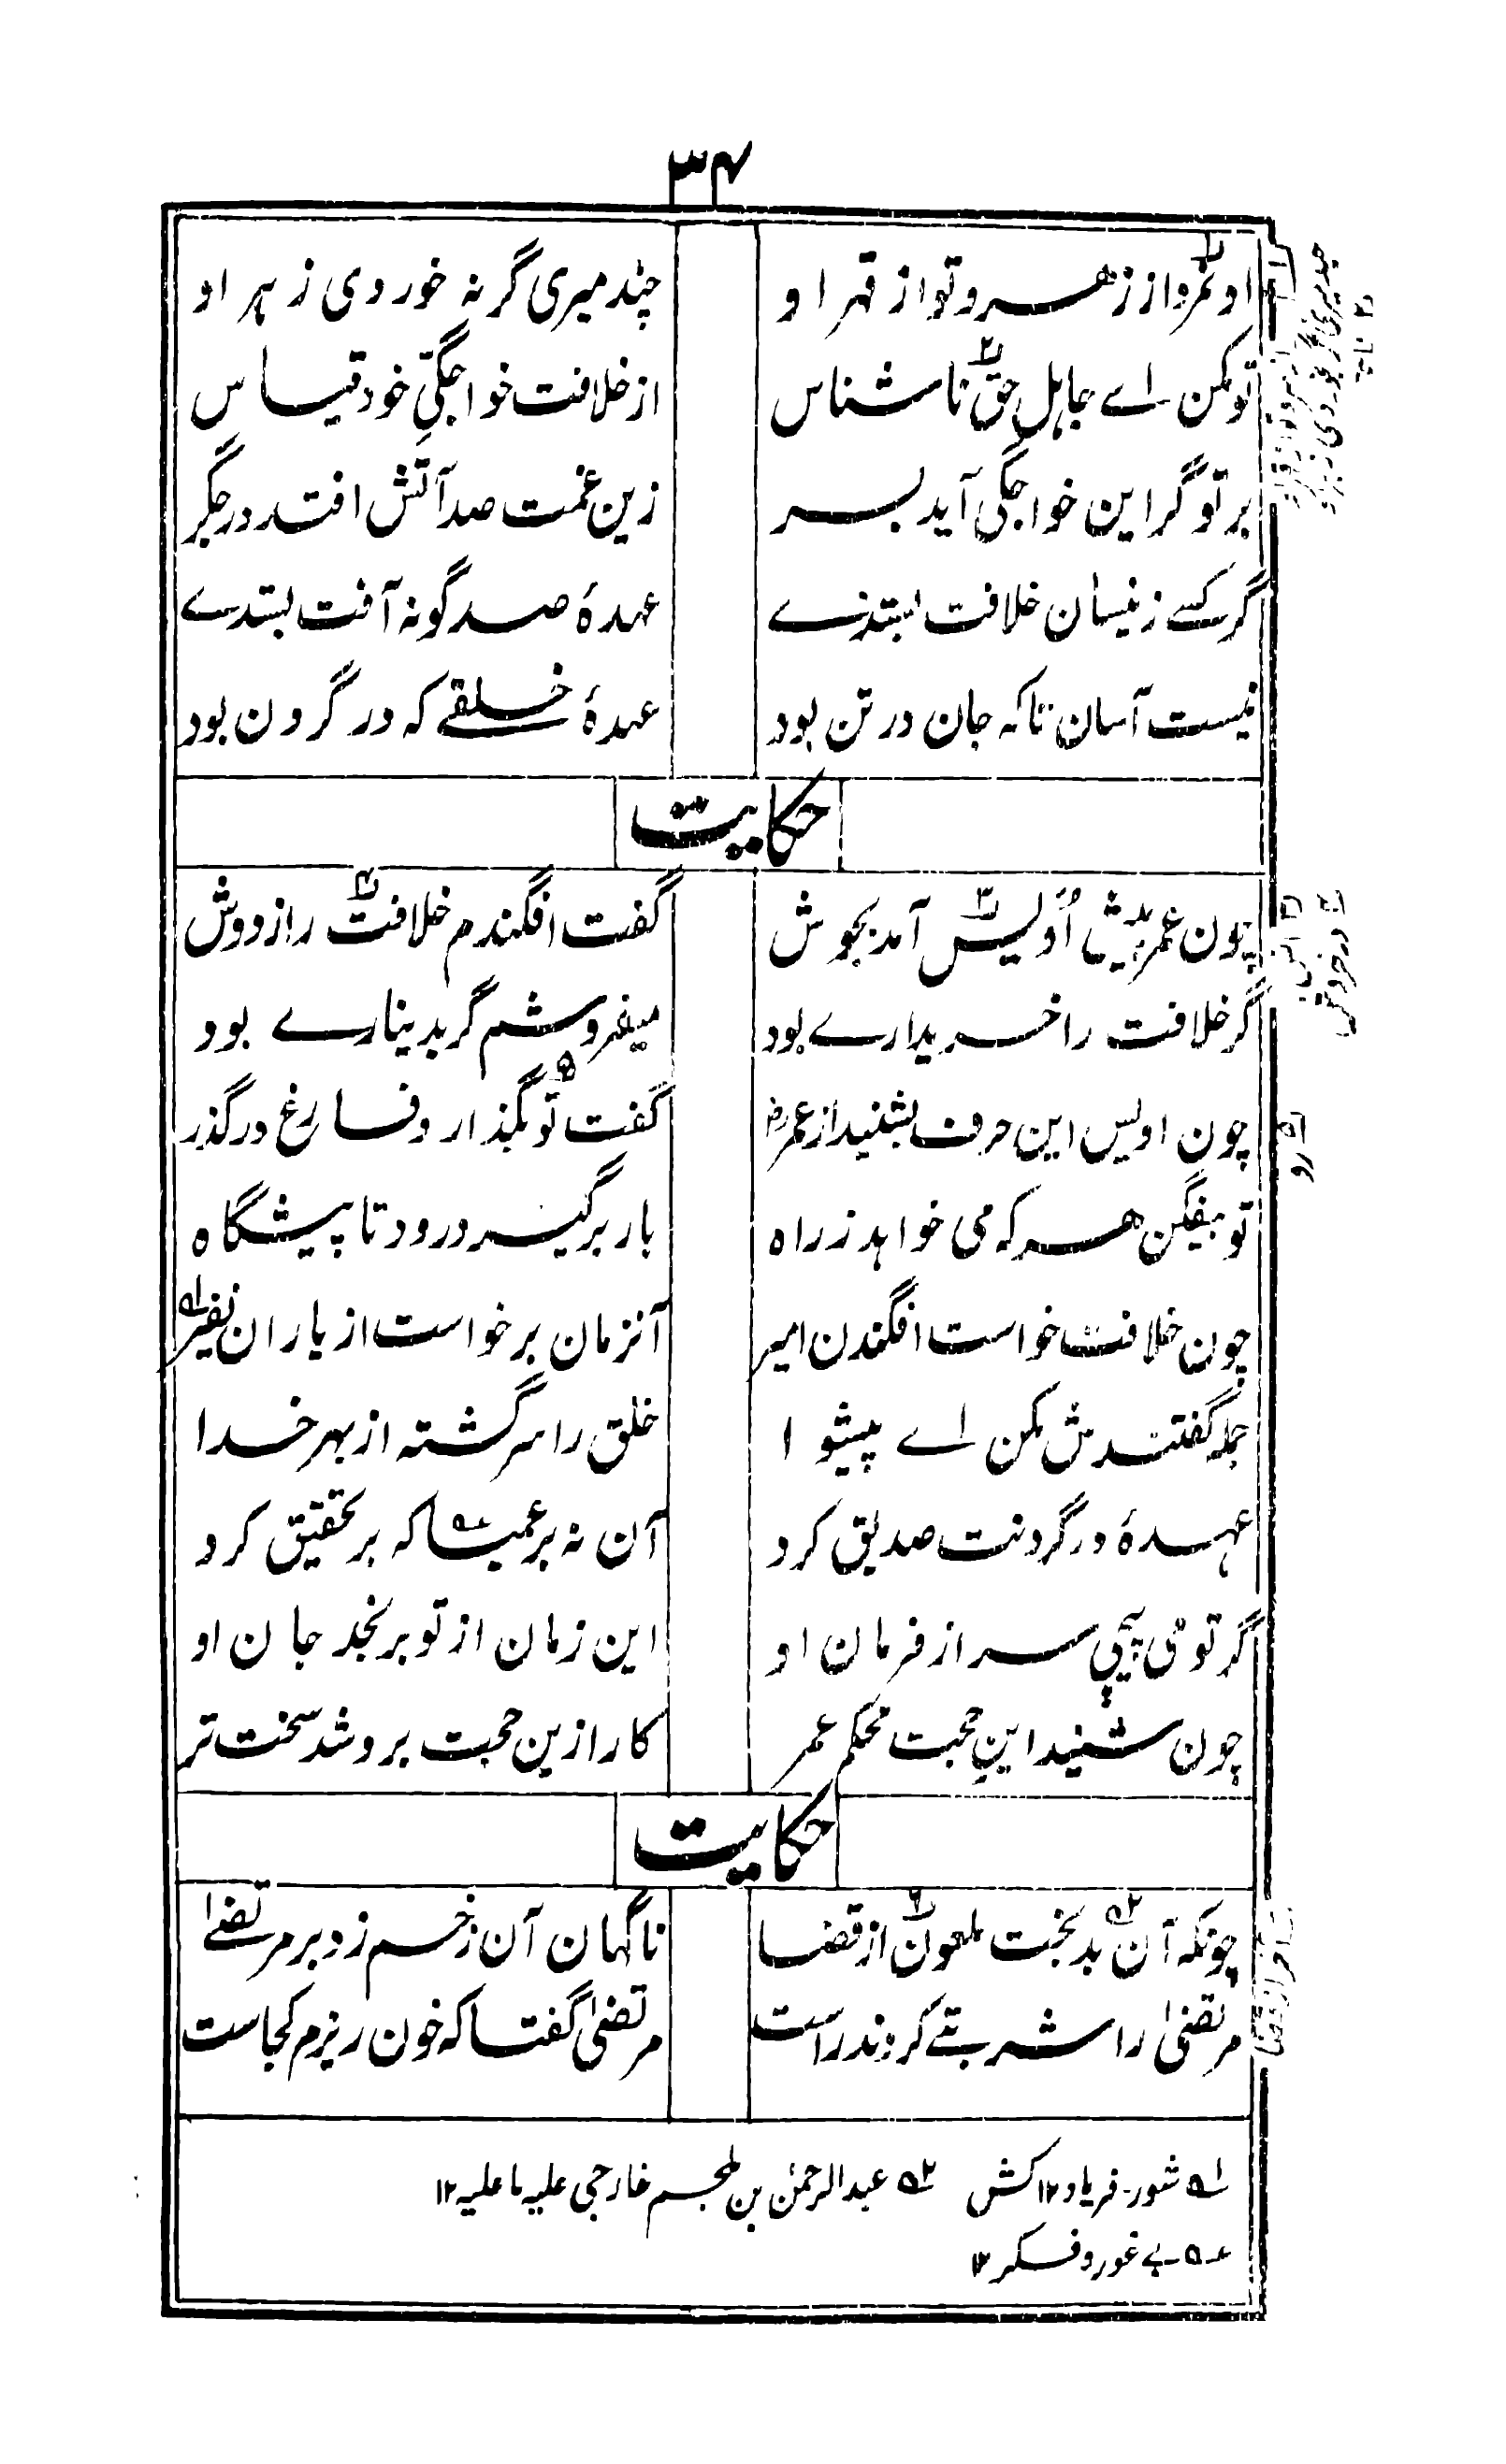 ۳۴
او نمرد از زهر و تو از قهر او چند میری گر نه خوردی زهر او
تو مکن اے جاہل حق ناشناس از خلافت خواجگیِّ خود قیاس
بر تو گر این خواجگی آید بسر زین غمت صد آتش افتد در جگر
گر کسے زینسان خلافت بستدے عہدۂ صد گونہ آفت بستدے
نیست آسان تا که جان در تن بود عہدۂ خلقے که در گردن بود
حکایت
چون عمر پیش اُویس آمد بجوش گفت افگندم خلافت را ز دوش
گر خلافت را خریدارے بود میفروشم گر بدینارے بود
چون اویس این حرف بشنید از عمرؓ گفت تو بگذار و فارغ در گذر
تو بیفگن هر که می خواہد ز راه باز برگیرد رود تا پیشگاه
چون خلافت خواست افگندن امیر آنزمان برخواست از یاران نفیر
جملہ گفتندش مکن اے پیشوا خلق را سرگشته از بهر خدا
عہدۂ در گردنت صدیق کرد آن نه بر عمیا که بر تحقیق کرد
گر تو می پیچی سر از فرمان او این زمان از تو برنجد جان او
چون شنید این حجت محکم عمر کار ازین حجت برو شد سخت تر
حکایت
چونکه آن بدبخت ملعون از قضا ناگهان آن زخم زد بر مرتضےٰ
مرتضیٰ را شربتے کردند راست مرتضیٰ گفتا که خون ریزم کجاست
۱ شور۔ فریاد ۱۲ کش ۲ عبدالرحمٰن بن ملجم خارجی علیہ ما علیہ ۱۲
بے غور و فکر ۱۲
۵ رو